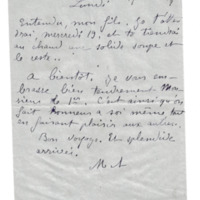 Lundi
Entendu, mon fils. Je t'atten
drai, mercredi 19, et te tiendrai
au chaud une solide soupe et
le reste.
A bientôt. Je vous em-
brasse bien tendrement
de C'est ainsi qu'on
fait honneur à soi même tout
en faisant plaisir aux autres.
Bon voyage. Et splendide
arrivée.
M A